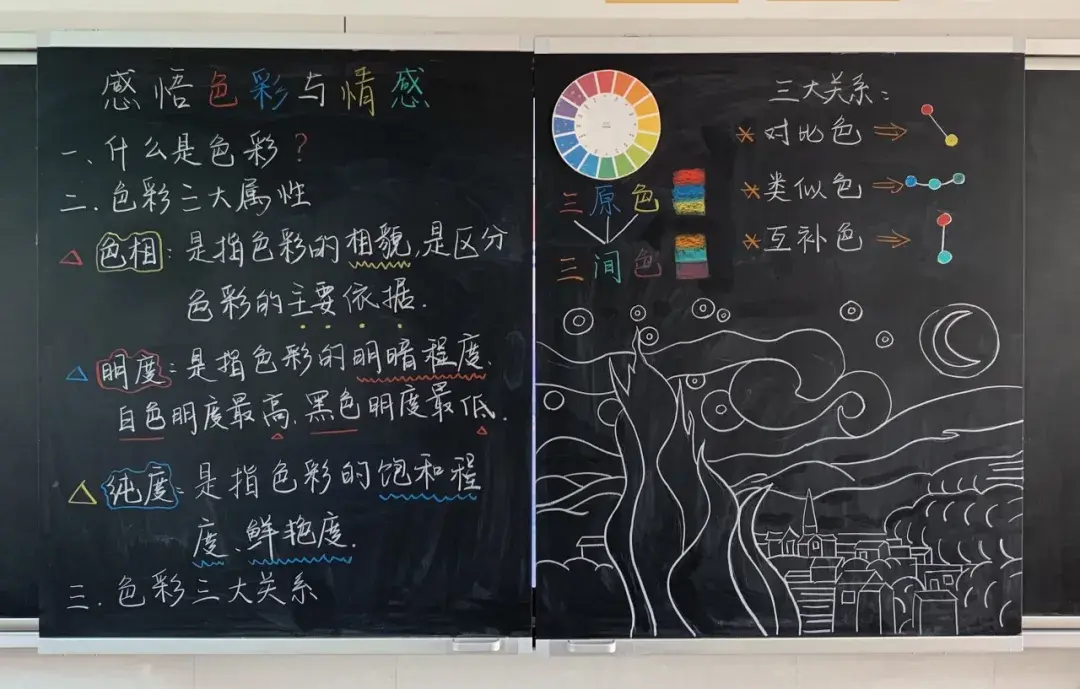 感悟色彩与情感
一、什么是色彩?
二.色彩三大属性
色相:是指色彩的相貌,是区分
色彩的主要依据.
明度:是指色彩的明暗程度.
白色明度最高.黑色明度最低.
纯度:是指色彩的饱和程
度、鲜艳度.
三.色彩三大关系
三原色
三间色
三大关系:
*对比色⇒
*类似色⇒
*互补色⇒